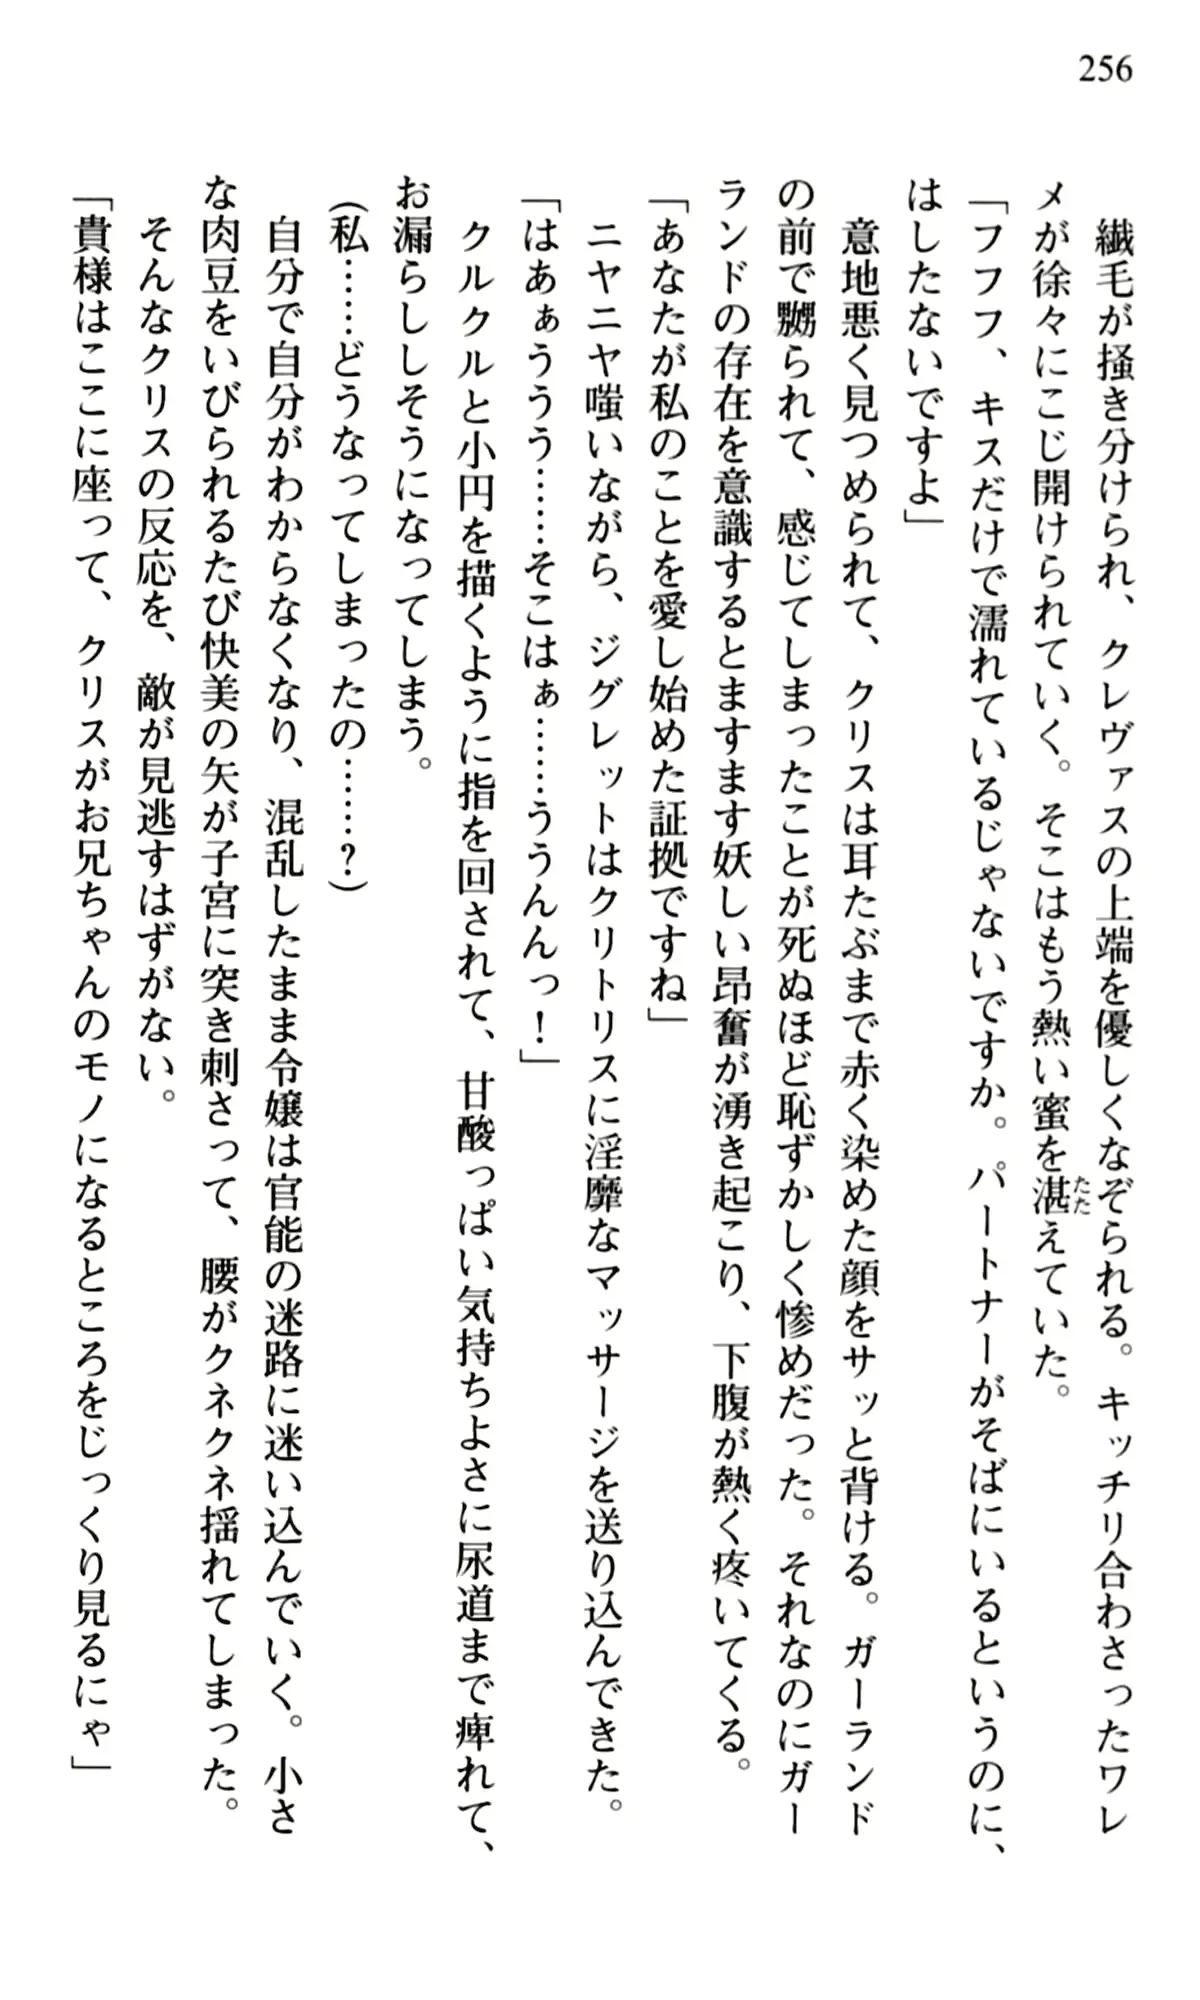 256
　繊毛が掻き分けられ、クレヴァスの上端を優しくなぞられる。キッチリ合わさったワレ
メが徐々にこじ開けられていく。そこはもう熱い蜜を湛えていた。
たた
「フフフ、キスだけで濡れているじゃないですか。パートナーがそばにいるというのに、
はしたないですよ」
　意地悪く見つめられて、クリスは耳たぶまで赤く染めた顔をサッと背ける。ガーランド
の前で嬲られて、感じてしまったことが死ぬほど恥ずかしく惨めだった。それなのにガー
ランドの存在を意識するとますます妖しい昂奮が湧き起こり、下腹が熱く疼いてくる。
「あなたが私のことを愛し始めた証拠ですね」
　ニヤニヤ嗤いながら、ジグレットはクリトリスに淫靡なマッサージを送り込んできた。
「はあぁううう……そこはぁ……ううんんっ！」
　クルクルと小円を描くように指を回されて、甘酸っぱい気持ちよさに尿道まで痺れて、
お漏らししそうになってしまう。
(私……どうなってしまったの……？)
　自分で自分がわからなくなり、混乱したまま令嬢は官能の迷路に迷い込んでいく。小さ
な肉豆をいびられるたび快美の矢が子宮に突き刺さって、腰がクネクネ揺れてしまった。
　そんなクリスの反応を、敵が見逃すはずがない。
「貴様はここに座って、クリスがお兄ちゃんのモノになるところをじっくり見るにゃ」